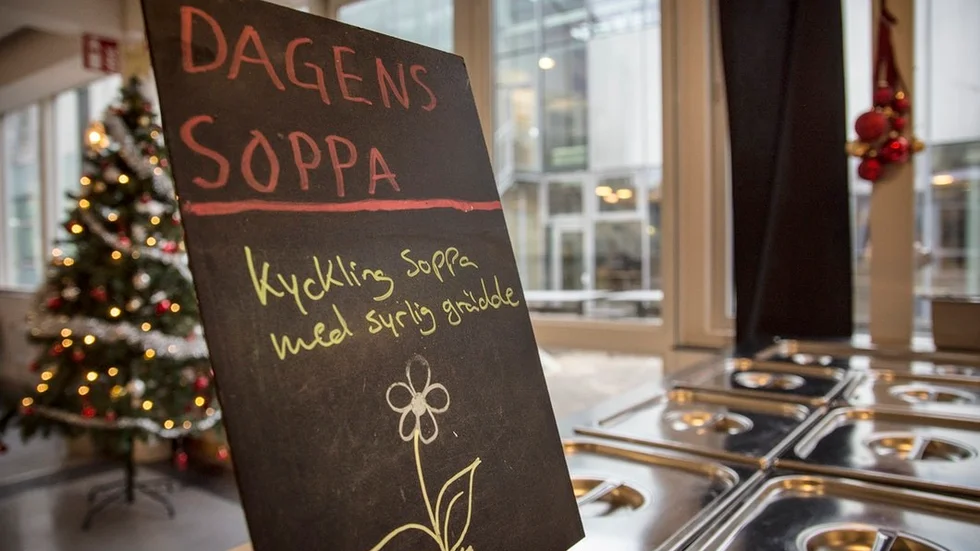 DAGENS
SOPPA
Kyckling soppa
med syrlig grädde